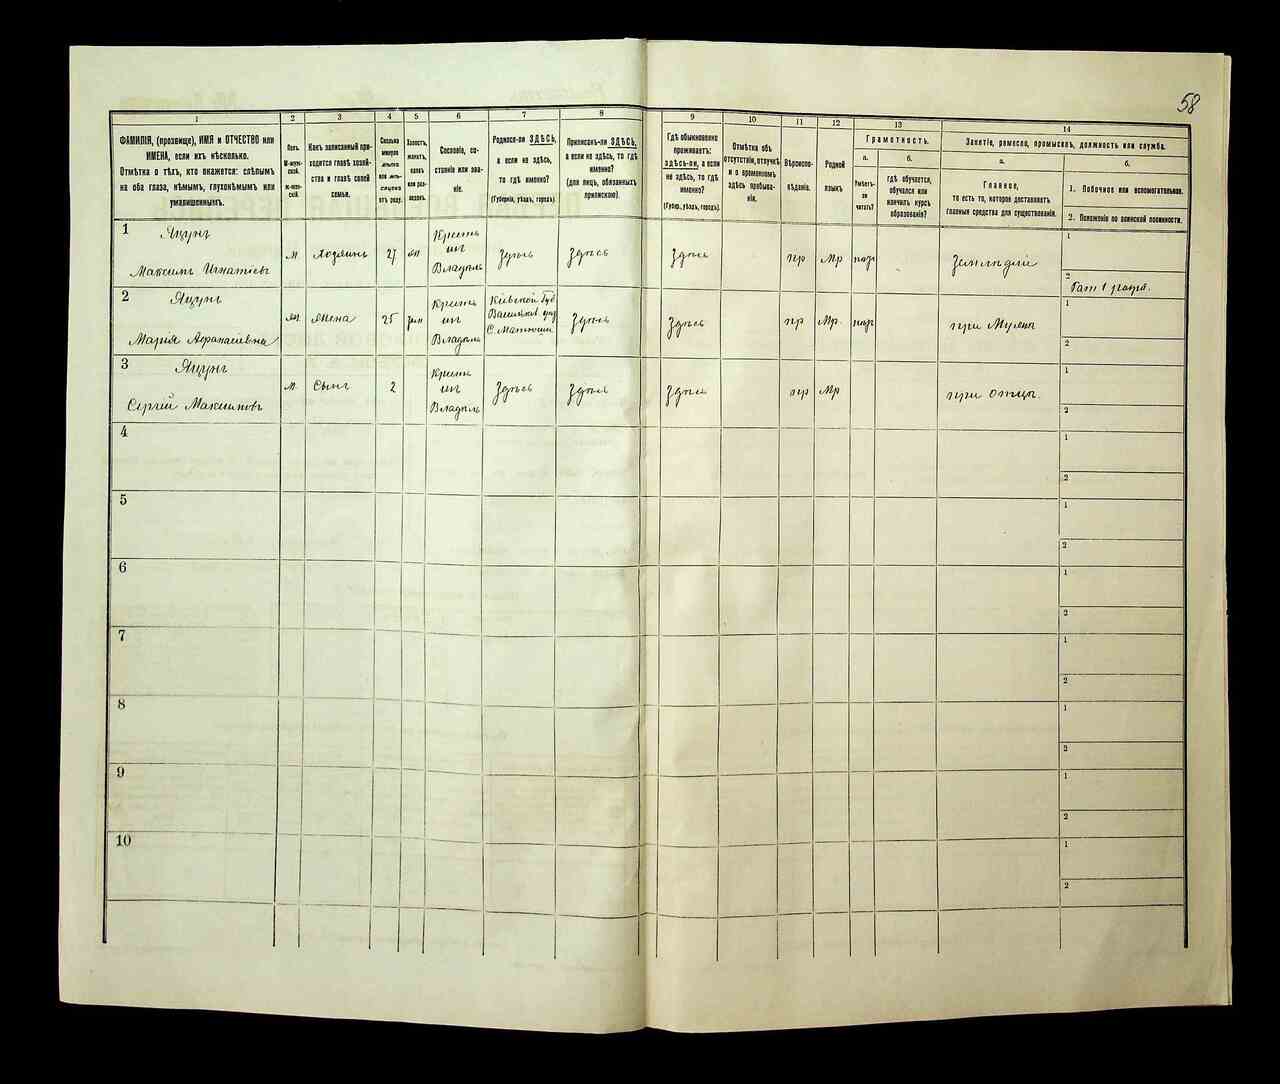 58
1
2
3
4
5
6
7
8
9
10
11
12
13
14
ФАМИЛІЯ, (прозвище), ИМЯ и ОТЧЕСТВО или
ИМЕНА, если ихъ нѣсколько.
Отмѣтка о тѣхъ, кто окажется: слѣпымъ
на оба глаза, нѣмымъ, глухонѣмымъ или
умалишеннымъ.
Полъ.
М-муж-
ской.
ж-жен-
скій.
Какъ записанный при-
ходится главѣ хозяй-
ства и главѣ своей
семьи.
Сколько
минуло
лѣтъ
или мѣ-
сяцевъ
отъ роду.
Холостъ,
женатъ,
вдовъ
или раз-
веденъ.
Сословіе, со-
стояніе или зва-
ніе.
Родился-ли ЗДѢСЬ,
а если не здѣсь,
то гдѣ именно?
(Губернія, уѣздъ, городъ).
Приписанъ-ли ЗДѢСЬ,
а если не здѣсь, то гдѣ
именно?
(для лицъ, обязанныхъ
припискою).
Гдѣ обыкновенно
проживаетъ:
здѣсь-ли, а если
не здѣсь, то гдѣ
именно?
(Губер., уѣздъ, городъ).
Отмѣтка объ
отсутствіи, отлучкѣ
и о временномъ
здѣсь пребыва-
ніи.
Вѣроиспо-
вѣданіе.
Родной
языкъ
Грамотность.
а.
Умѣетъ-
ли
читать?
б.
гдѣ обучается,
обучался или
кончилъ курсъ
образованія?
Занятіе, ремесло, промыселъ, должность или служба.
а.
Главное,
то есть то, которое доставляетъ
главныя средства для существованія.
б.
1. Побочное или вспомогательное.
2. Положеніе по воинской повинности.
1
Яцунъ
Максимъ Игнатіевъ
м
Хозяинъ
27
жен
Крестья
инъ
Владѣль
Здѣсь
Здѣсь
Здѣсь
пр
Мр
Земледѣл
1
2
2
Яцунъ
Марія Афанасіевна
жп
Жена
25
зам
Крестья
инъ
Владѣль
Кіевской Губ
Васильков уѣзд
Здѣсь
Здѣсь
пр
Мр.
при Мужѣ
1
2
3
Яцунъ
Сергій Максимовъ
м
Сынъ
2
Крестья
инъ
Владѣль
Здѣсь
Здѣсь
Здѣсь
пр
Мр
при отцѣ.
1
2
4
1
2
5
1
2
6
1
2
7
1
2
8
1
2
9
1
2
10
1
2